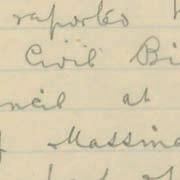 reports
Civil Bi
ncil at
f Massin